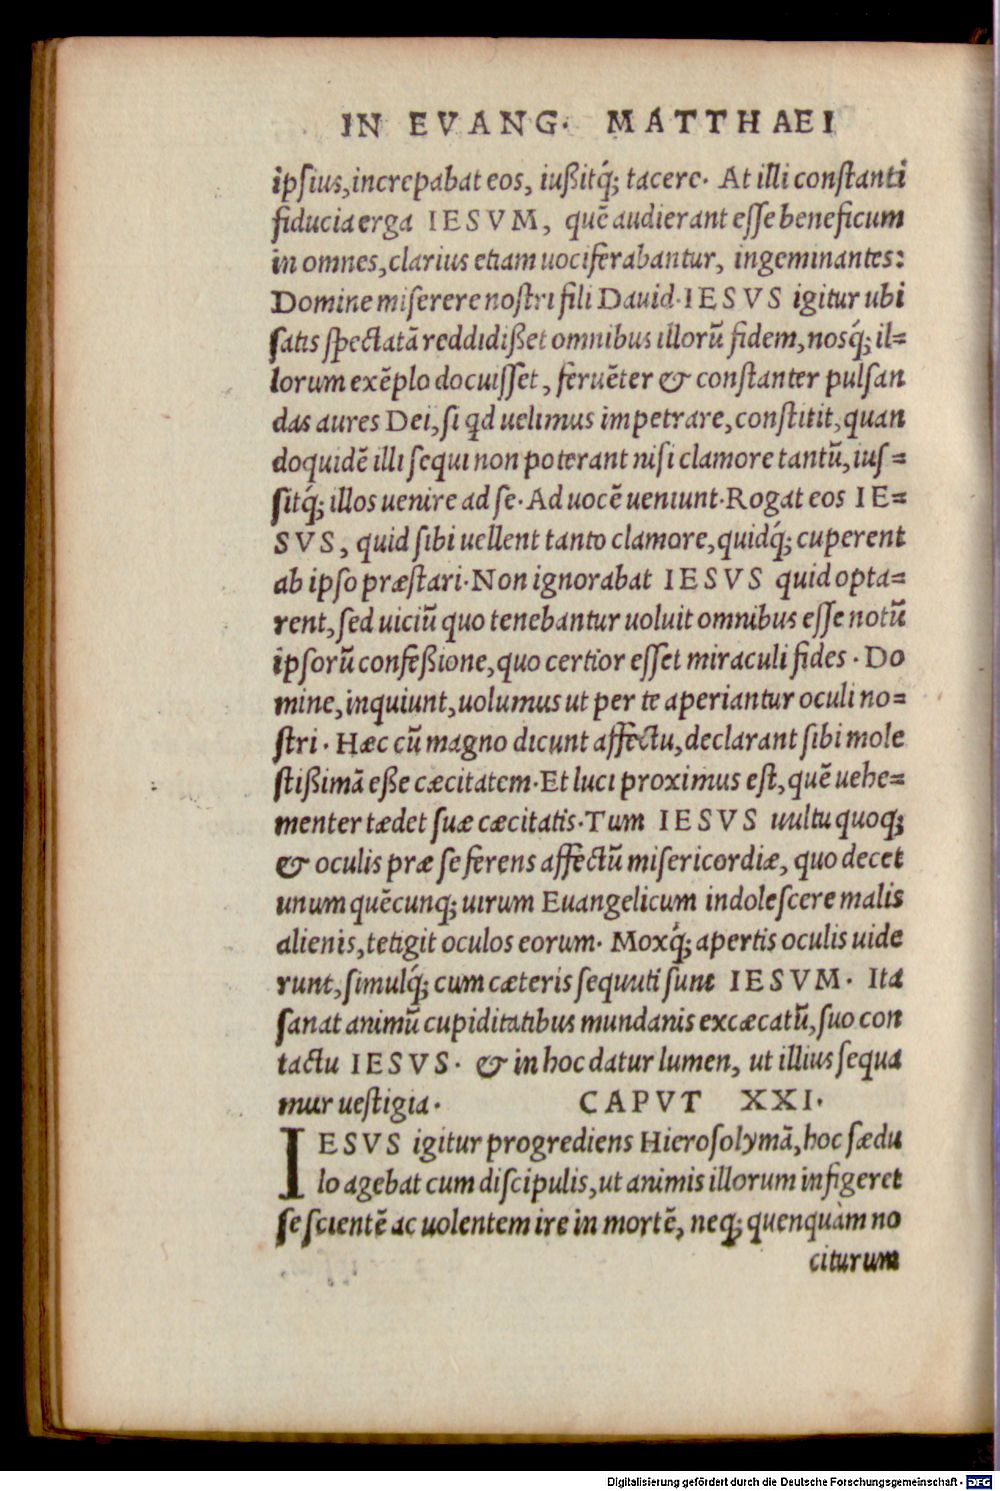 IN EVANG. MATTHAEI
ipsius, increpabat eos, iußitq́; tacere. At illi constanti
fiducia erga IESVM, quē audierant esse beneficum
in omnes, clarius etiam uociferabantur, ingeminantes:
Domine miserere nostri fili Dauid. IESVS igitur ubi
satis spectatā reddidißet omnibus illorū fidem, nosq́; il=
lorum exēplo docuisset, feruēter & constanter pulsan
das aures Dei, si qd uelimus impetrare, constitit, quan
doquidē illi sequi non poterant nisi clamore tantū, ius=
sitq́; illos uenire ad se. Ad uocē ueniunt. Rogat eos IE=
SVS, quid sibi uellent tanto clamore, quidq́; cuperent
ab ipso præstari. Non ignorabat IESVS quid opta=
rent, sed uiciū quo tenebantur uoluit omnibus esse notū
ipsorū confeßione, quo certior esset miraculi fides. Do
mine, inquiunt, uolumus ut per te aperiantur oculi no=
stri. Hæc cū magno dicunt affectu, declarant sibi mole
stißimā eße cæcitatem. Et luci proximus est, quē uehe=
menter tædet suæ cæcitatis. Tum IESVS uultu quoq;
& oculis præ se ferens affectū misericordiæ, quo decet
unum quēcunq; uirum Euangelicum indolescere malis
alienis, tetigit oculos eorum. Moxq́; apertis oculis uide
runt, simulq́; cum cæteris sequuti sunt IESVM. Ita
sanat animū cupiditatibus mundanis excæcatū, suo con
tactu IESVS. & in hoc datur lumen, ut illius sequa
mur uestigia. CAPVT XXI.
IESVS igitur progrediens Hierosolymā, hoc sædu
lo agebat cum discipulis, ut animis illorum infigeret
se scientē ac uolentem ire in mortē, neq; quenquàm no
citurum
Digitalisierung gefördert durch die Deutsche Forschungsgemeinschaft - DFG